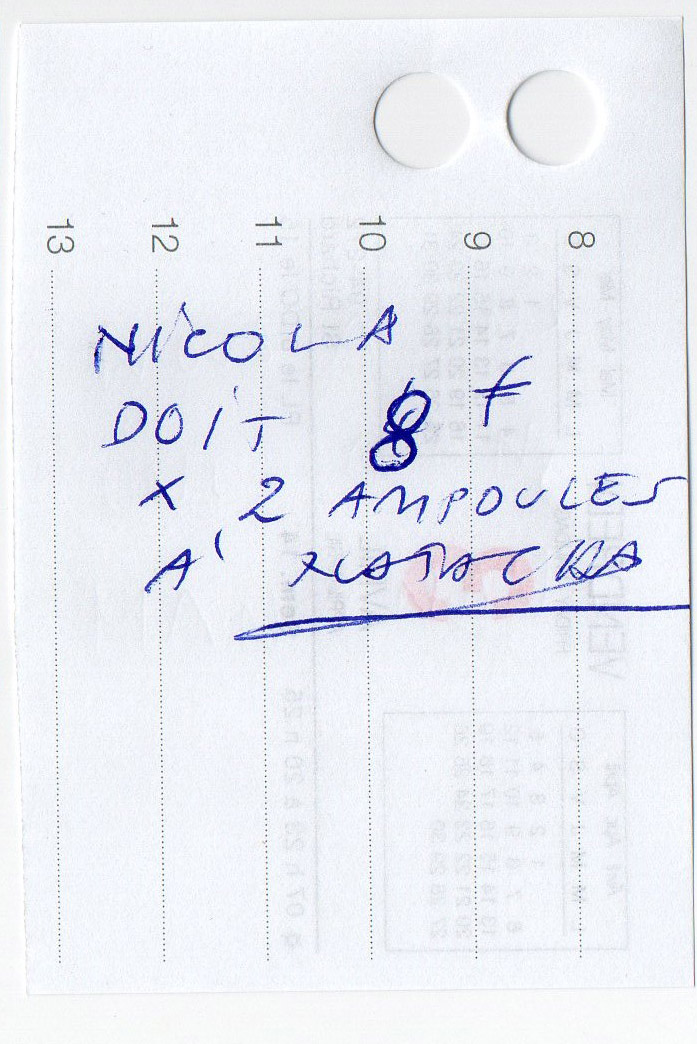 8
9
10
11
12
13
NICOLA
DOIT 8 F
X 2 AMPOULES
A' NATACHA